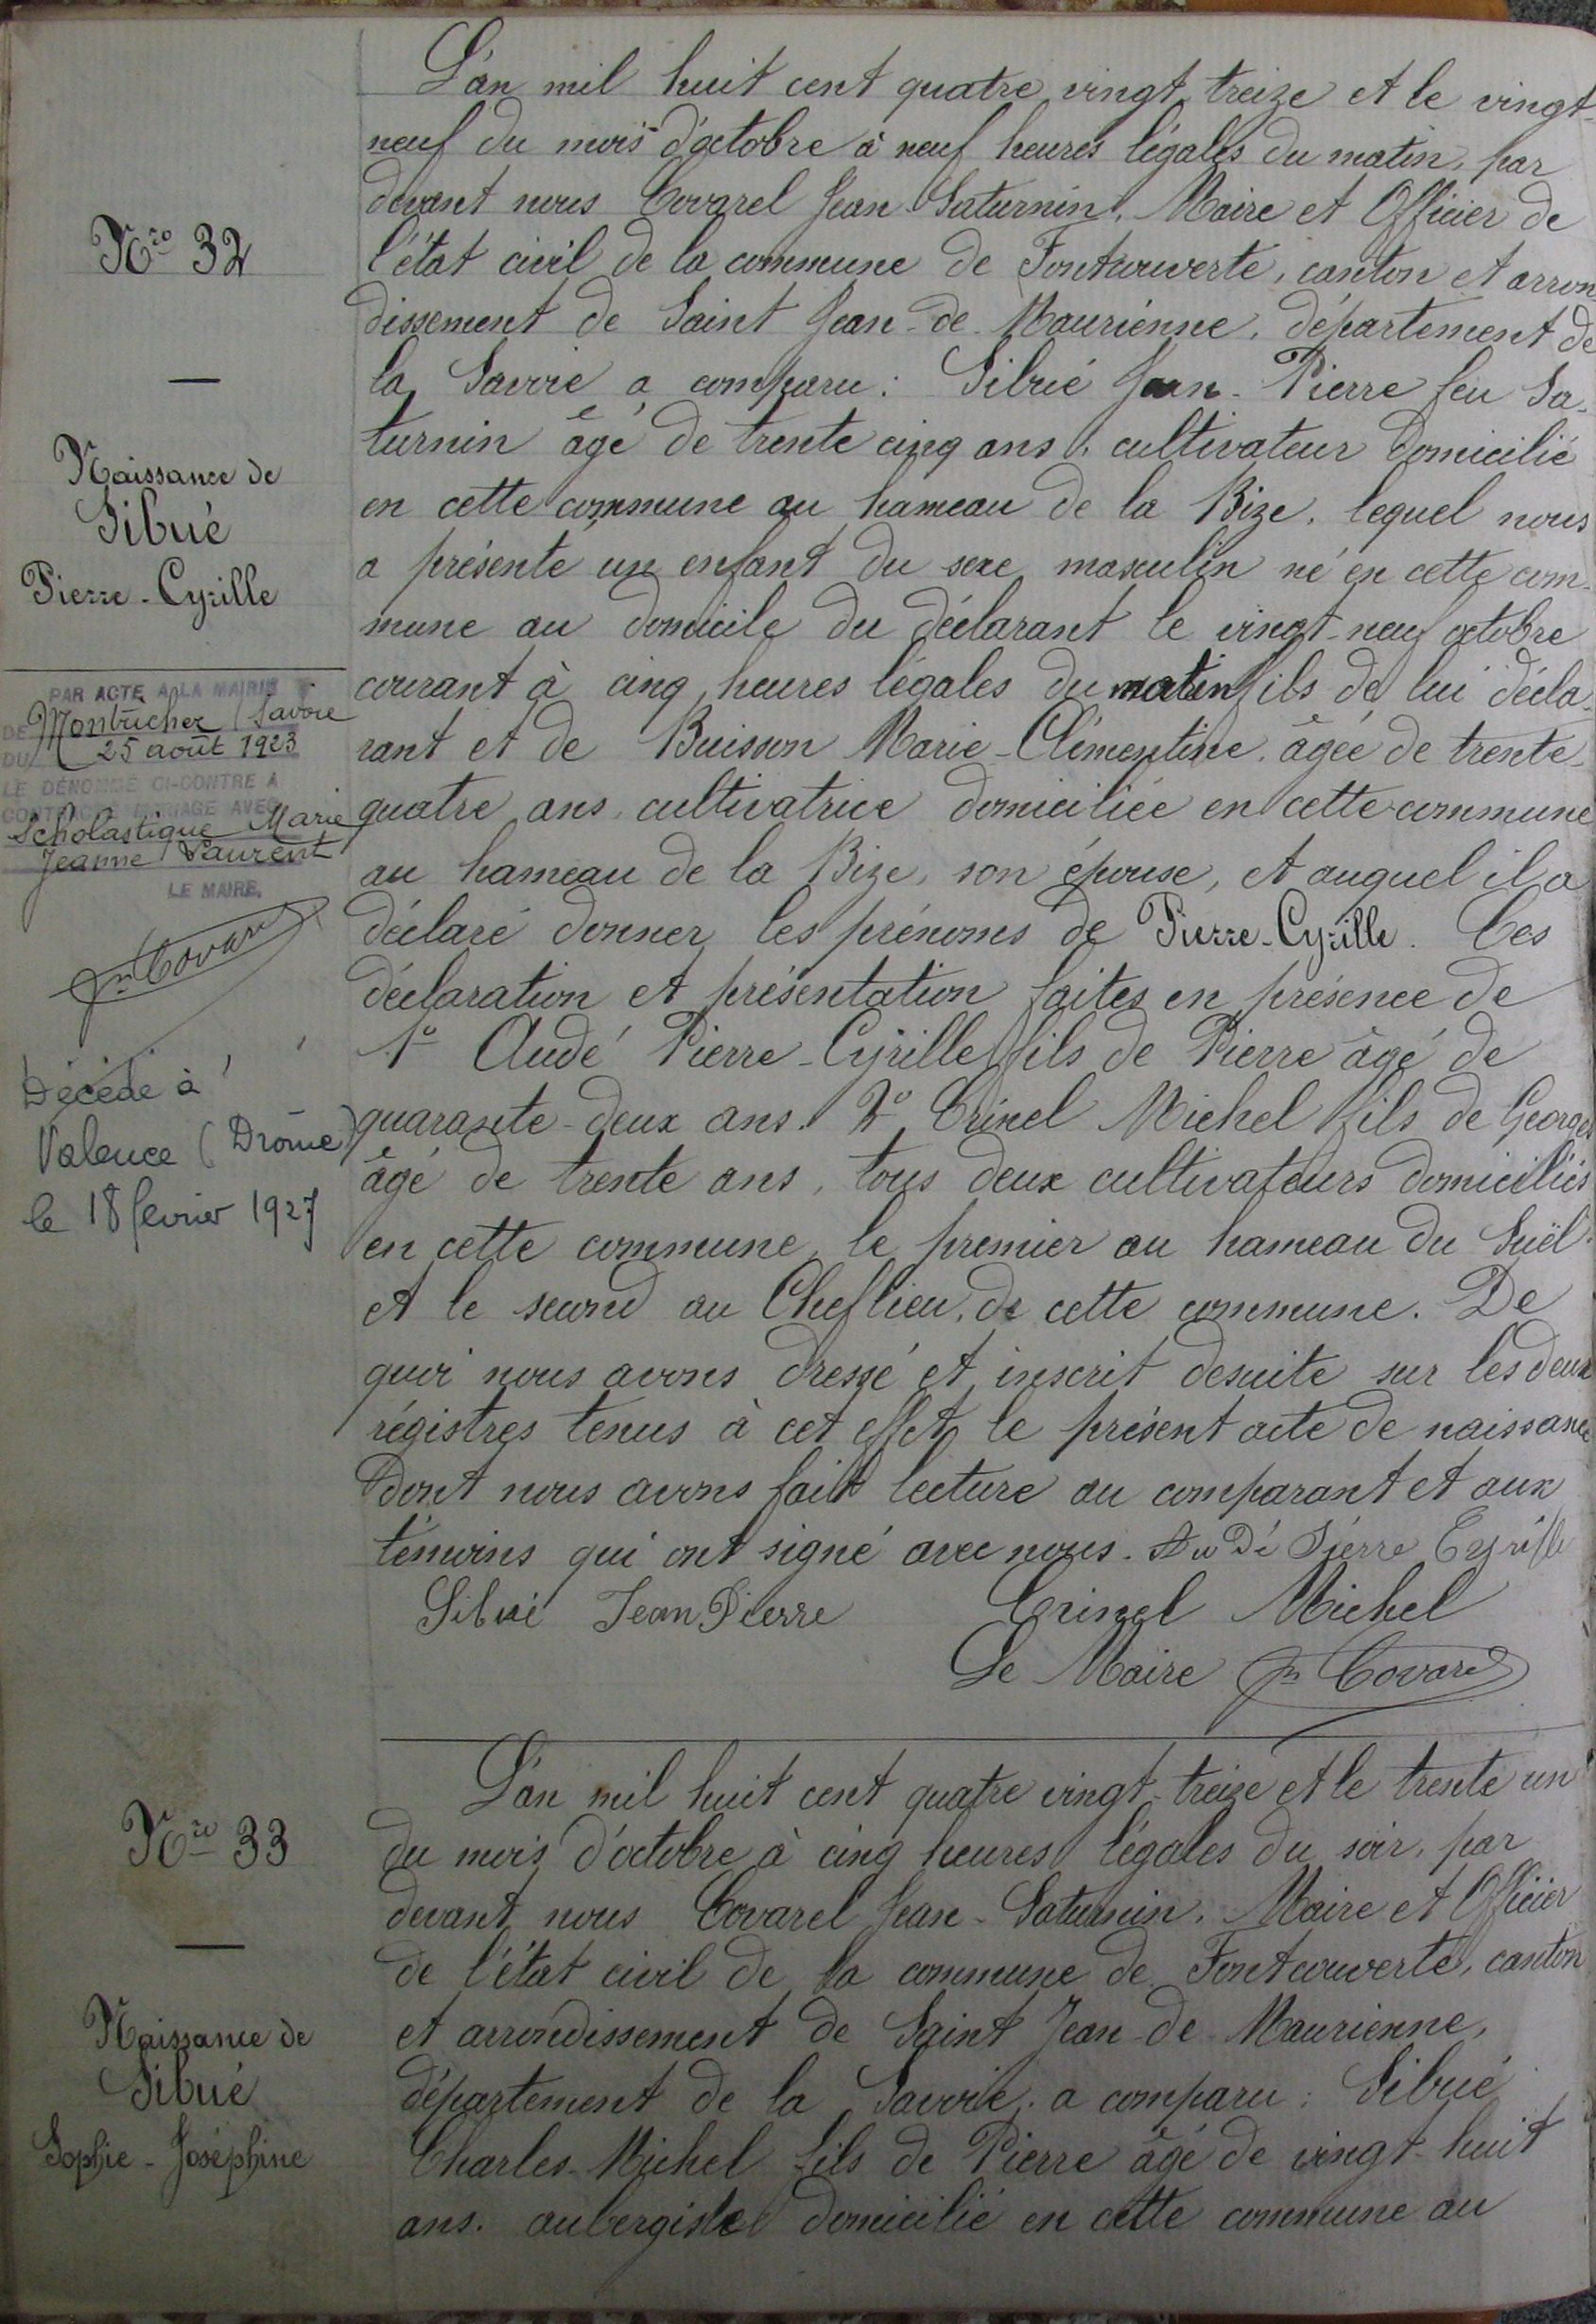 Nro 32
Naissance de
Sibué
Pierre-Cyrille
PAR ACTE A LA MAIRIE
DE Montricher (Savoie
DU 25 août 1923
LE DÉNOMMÉ CI-CONTRE A
CONTRACTÉ MARIAGE AVEC
Scholastique Marie
Jeanne Laurent
LE MAIRE,
Jn Covarel
Décédé à
Valence (Drôme)
le 18 février 1927
L'an mil huit cent quatre vingt treize et le vingt-
neuf du mois d'octobre à neuf heures légales du matin, par
devant nous Covarel Jean Saturnin, Maire et Officier de
l'état civil de la commune de Fontcouverte, canton et arron
dissement de Saint Jean-de-Maurienne, département de
la Savoie a comparu: Sibué Jean-Pierre feu Sa-
turnin âgé de trente cinq ans, cultivateur domicilié
en cette commune au hameau de la Bize, lequel nous
a présenté un enfant du sexe masculin né en cette com-
mune au domicile du déclarant le vingt-neuf octobre
courant à cinq heures légales du matin fils de lui décla-
rant et de Buisson Marie-Clémentine, âgée de trente-
quatre ans, cultivatrice domiciliée en cette commune
au hameau de la Bize, son épouse, et auquel il a
déclaré donner les prénoms de Pierre-Cyrille. Ces
déclaration et présentation faites en présence de
1° Audé Pierre-Cyrille fils de Pierre âgé de
quarante-deux ans. 2° Crinel Michel fils de Georges
âgé de trente ans, tous deux cultivateurs domiciliés
en cette commune, le premier au hameau du Suël
et le second au Cheflieu, de cette commune. De
quoi nous avons dressé et inscrit desuite sur les deux
régistres tenus à cet effet le présent acte de naissance
dont nous avons fait lecture au comparant et aux
témoins qui ont signé avec nous. Audé Pierre Cyrille
Sibué Jean Pierre Crinel Michel
Le Maire Jn Covarel
Nro 33
Naissance de
Sibué
Sophie-Joséphine
L'an mil huit cent quatre vingt-treize et le trente un
du mois d'octobre à cinq heures légales du soir, par
devant nous Covarel Jean-Saturnin, Maire et Officier
de l'état civil de la commune de Fontcouverte, canton
et arrondissement de Saint Jean-de-Maurienne,
département de la Savoie, a comparu: Sibué
Charles-Michel fils de Pierre âgé de vingt-huit
ans, aubergiste domicilié en cette commune au